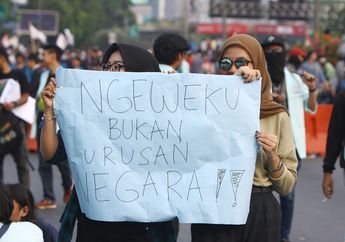 NGEWEKU
BUKAN
URUSAN
NEGARA!!